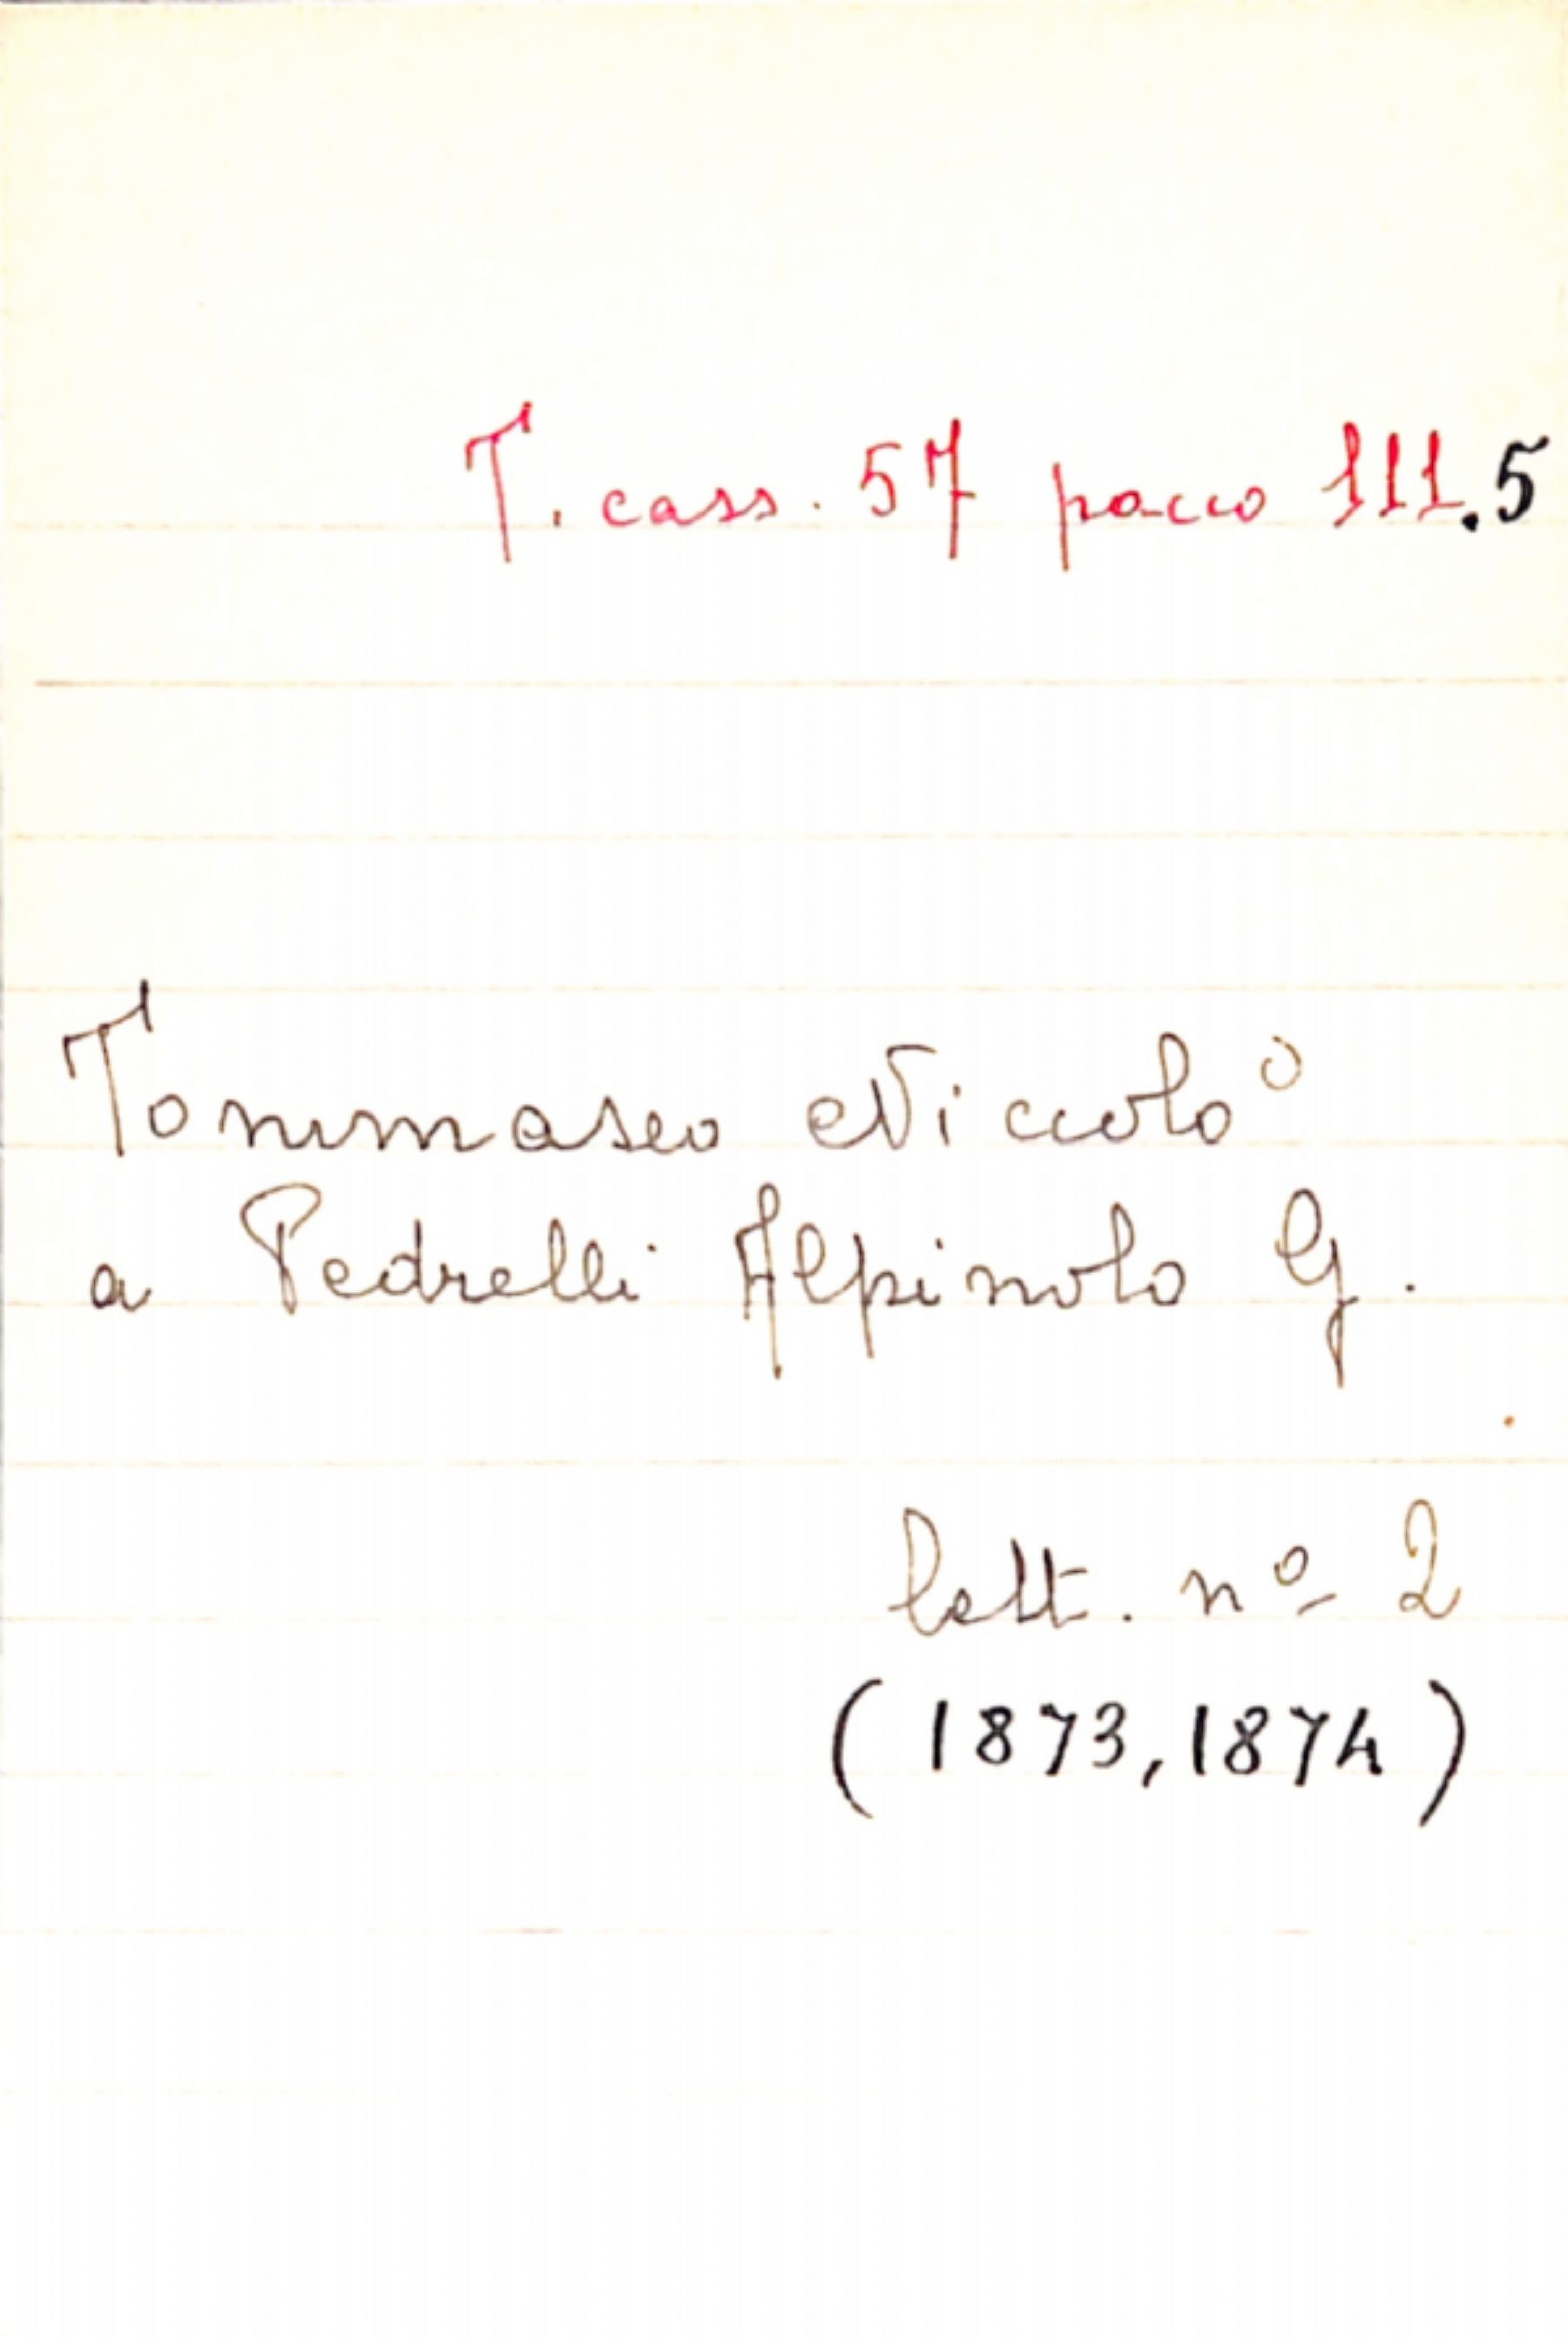 T. cass. 57 pacco 111.5
Tommaseo Niccolò
a Pedrelli Alpinolo G.
lett. nº 2
(1873, 1874)